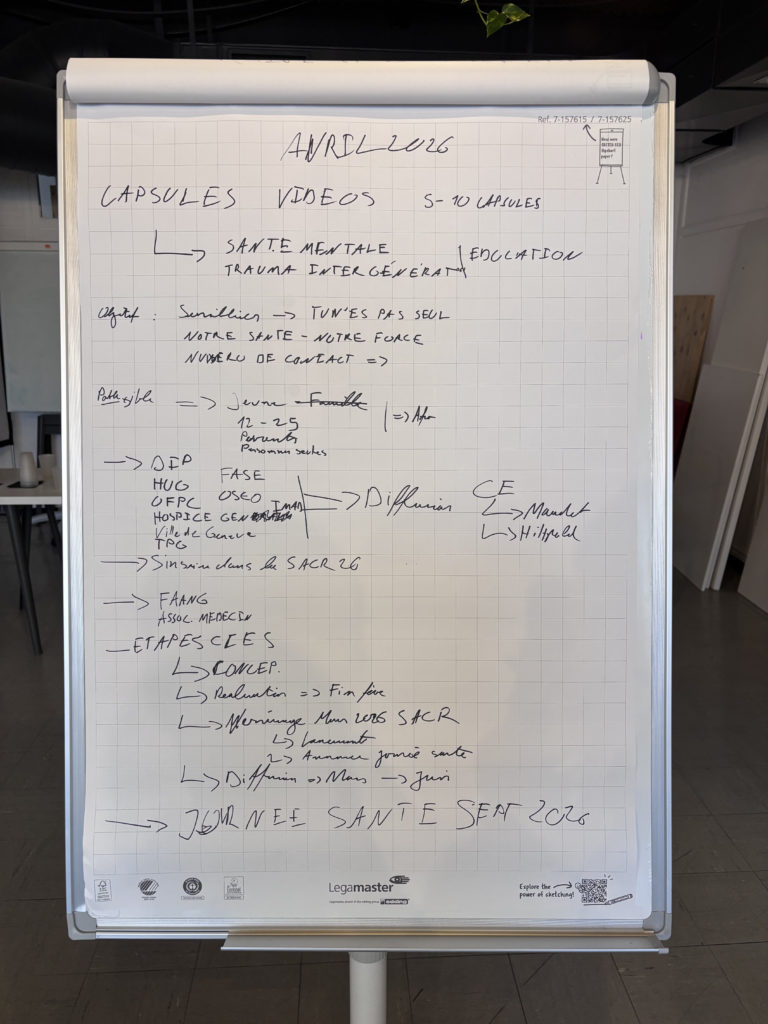 Ref. 7-157615 / 7-157625
AVRIL 2026
CAPSULES VIDEOS 5-10 CAPSULES
↳ SANTE MENTALE
TRAUMA INTERGÉNÉRAT | EDUCATION
Objectif : → TU N'ES PAS SEUL
NOTRE SANTE - NOTRE FORCE
NUMERO DE CONTACT =>
Public => Jeune Famille
12 - 25 | =>
Parents
Personnes
→ DIP
HUG FASE
OFPC OSEO
HOSPICE GEN
Ville de Geneve
TPG
=> Diffusion
CE
↳ Maudet
↳ Hiltpold
→ dans la SACR 26
→ FAANG
ASSOC. MEDECIN
- ETAPES CLES
↳ CONCEP.
↳ Realisation => Fin
↳ Mars 2026 SACR
↳ Lancement
↳ Annonce journée sante
↳ Diffusion => Mars → Juin
→ JOURNEE SANTE SEPT 2026
Legamaster
edding
Explore the
power of sketching!